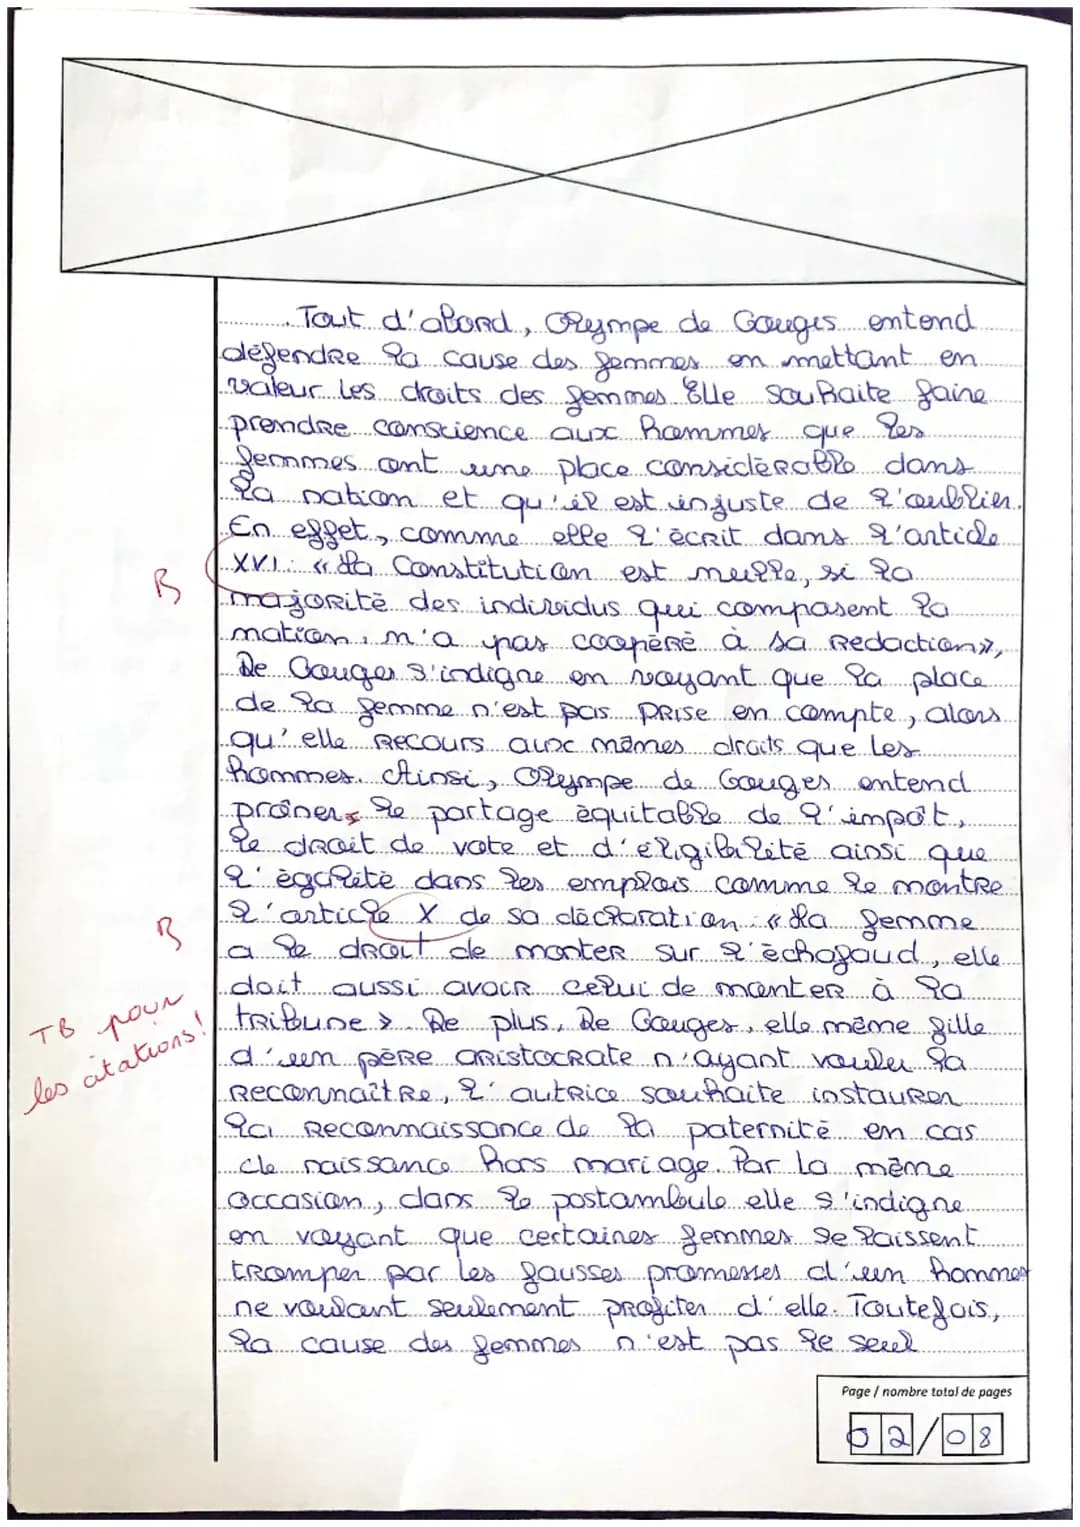 Tout d'abord, Olympe de Gouges entend
défendre la cause des femmes en mettant en
valeur les droits des femmes. Elle souhaite faire
prendre conscience aux hommes que les
femmes ont une place considérable dans
la nation et qu'il est injuste de l'oublier.
En effet, comme elle l'écrit dans l'article
B
XVI : « La Constitution est nulle, si la
majorité des individus qui composent la
nation, n'a pas coopéré à sa rédaction »,
De Gouges s'indigne en voyant que la place
de la femme n'est pas prise en compte, alors
qu'elle recours aux mêmes droits que les
hommes. Ainsi, Olympe de Gouges entend
prôner le partage équitable de l'impôt,
le droit de vote et d'éligibilité ainsi que
l'égalité dans les emplois comme le montre
B
l'article X de sa déclaration : « La femme
a le droit de monter sur l'échafaud, elle
doit aussi avoir celui de monter à la
TB pour
les citations!
tribune ». De plus, De Gouges, elle même fille
d'un père aristocrate n'ayant voulu la
reconnaître, l'autrice souhaite instaurer
la reconnaissance de la paternité en cas
de naissance hors mariage. Par la même
occasion, dans le postambule elle s'indigne
en voyant que certaines femmes se laissent
tromper par les fausses promesses d'un homme
ne voulant seulement profiter d'elle. Toutefois,
la cause des femmes n'est pas le seul
Page / nombre total de pages
02/08